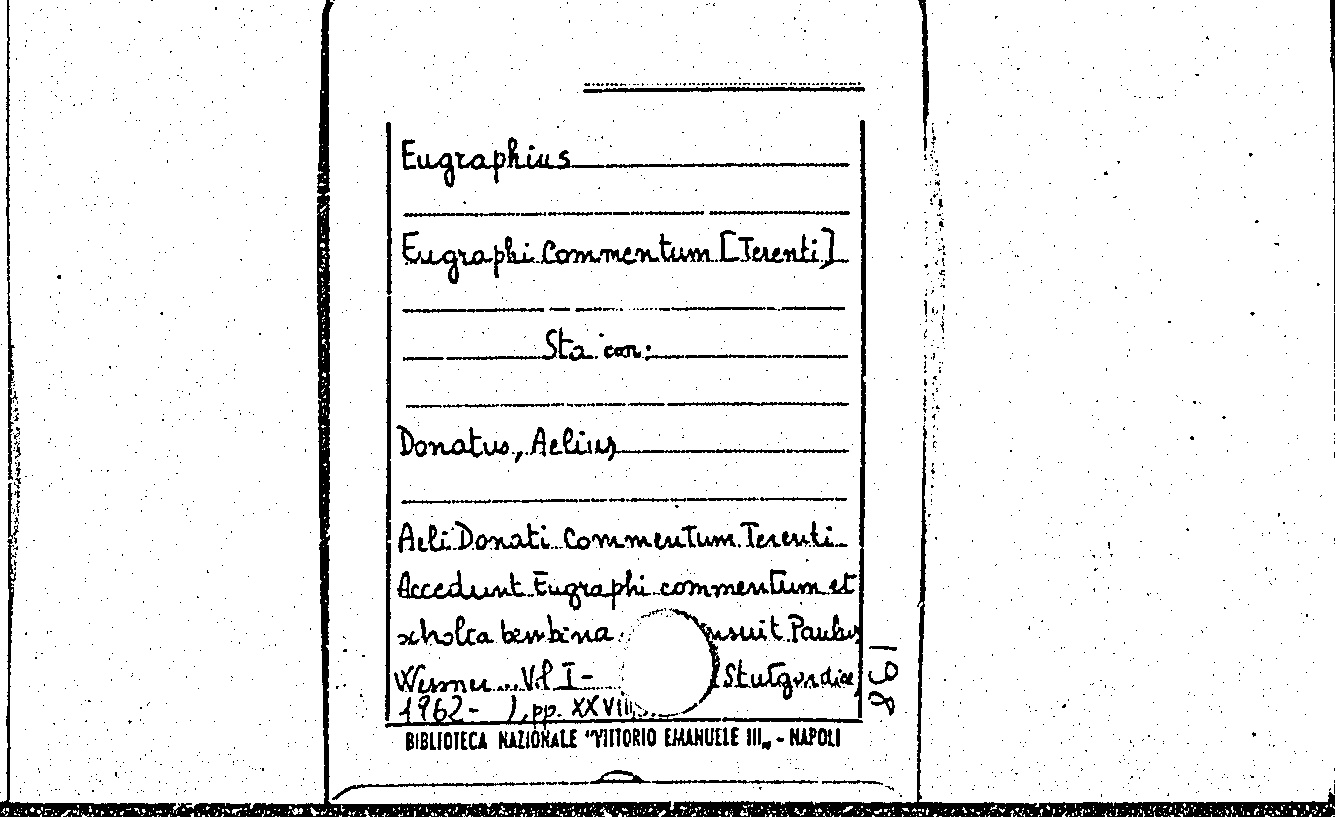 Eugraphius
Eugraphi Commentum [Terenti]
Sta con:
Donatus, Aelius
Aeli Donati Commentum Terenti
Accedunt Eugraphi commentum et
scholia bembina nsuit Paulus
Wesner... Vol I- Stutgardiae,
1962- ), pp. XXVIII,
BIBLIOTECA NAZIONALE "VITTORIO EMANUELE III„ - NAPOLI
198